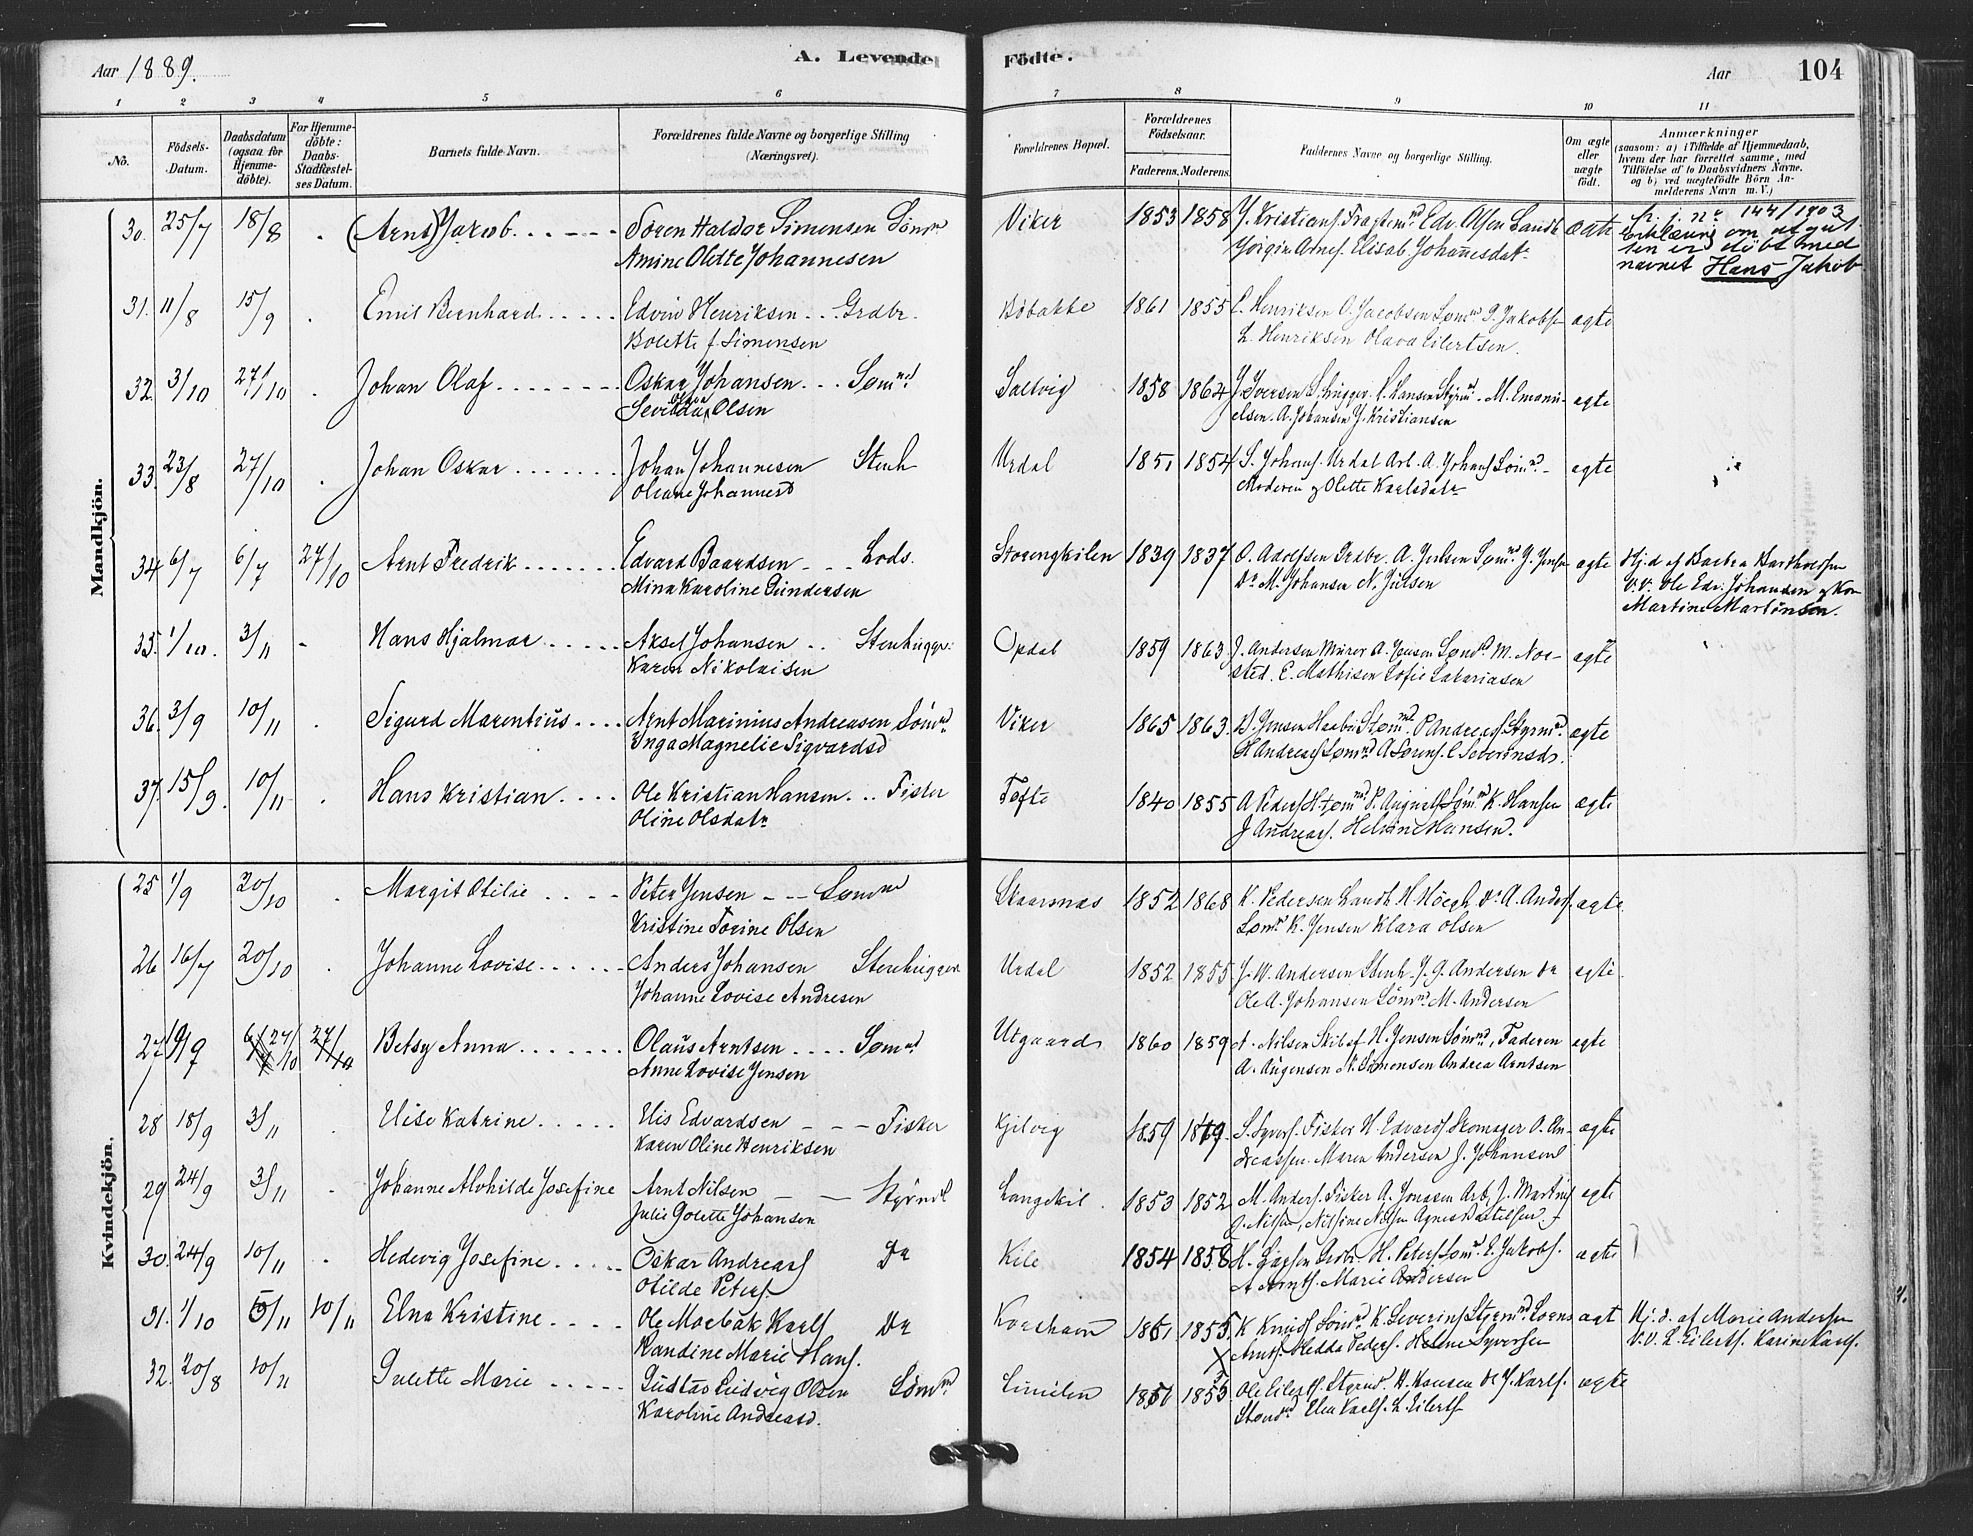 Aar 1889.
A. Levende Fødte.
Aar 104
1 2 3 4 5 6 7 8 9 10 11
No.
Fødsels-Datum.
Daabsdatum (ogsaa for Hjemme-døbte).
For Hjemme-døbte: Daabs-Stadfæstelses Datum.
Barnets fulde Navn.
Forældrenes fulde Navne og borgerlige Stilling (Næringsvei).
Forældrenes Bopæl.
Forældrenes Fødselsaar.
Faderens. Moderens.
Faddernes Navne og borgerlige Stilling.
Om ægte eller uægte født.
Anmærkninger (saasom: a) i Tilfælde af Hjemmedaab, hvem der har forrettet samme, med Tilføielse af to Daabsvidners Navne, og b) ved uægtefødte Børn Anmelderens Navn m. V.)
Mandkjøn.
30. 25/7 18/8 . (Arnt) Jakob. Søren Haldor Simensen Sømd Viker 1853 1858 J. Kristians. Fragtemd Edv. Olsen Landh. ægte k. j. nr 144/1903
Amine Olette Johannesen Jørgine Arnes. Elisab. Johannesdatr Erklæring om at gutten er døbt med navnet Hans Jakob
31. 11/8 15/9 . Emil Bernhard Edvin Henriksen Grdbr. Bøbakke 1861 1855 E. Henriksen O. Jacobsen Sømd P. Jakobs. ægte
Bolette f. Simensen L. Henriksen Olava Eilertsen.
32. 3/10 27/10 . Johan Olaf Oskar Johansen Sømd Saltvig 1858 1864 J. Iversen Sthugger. K. Hansen Styrmd. M. Emanuelsen. A. Johansen J. Kristiansen ægte
Olsen
33. 23/8 27/10 . Johan Oskar Johan Johannesen Stenh Urdal 1851 1854 S. Johans. Urdal Arb. A. Johans Sømd ægte
Oleane Johannesd Moderen og Olette Karlsdatr
34. 6/7 6/7 27/10 Arnt Fredrik Edvard Baardsen Lods. Storengkilen 1839 1837 O. Adolfsen Grdbr. A. Julsen Sømd J. Jens. ægte Hj.d af Barbra Bartholsen
Mina Karoline Gundersen Dr M. Johansen N. Julsen V.V. Ole Edv. Johansen og Kone Martine Martinsen.
35. 1/10. 3/11 - Hans Hjalmar Aksel Johansen Stenhugger. Opdal 1859 1863 J. Andersen Murer A. Jensen Sømd M. Norsted. E. Mathisen Sofie Zakariasen ægte
Karen Nikolaisen
36. 3/9 10/11 . Sigurd Marentius Arnt Marinius Andreasen Sømd Viker 1865 1863 Jensen Sømd P. Andreas. Styrmd. ægte
Inga Magnelie Sigvardsd H Andreas Sømd A Sørens. C Severinsdr.
37. 15/9. 10/11 . Hans Kristian Ole Kristian Hansen Fisker Tofte 1840 1855 A Peders. P. August Sømd K. Hansen ægte
Oline Olsdatr J Andreas. Helvine Hansen.
Kvindekjøn.
25 1/9 20/10 . Margit Otilie Peter Jensen Sømd Skaarsnas 1852 1868 K. Pedersen Landh. H Høegh Dr. A. Anders. Sømd K. Jensen Klara Olsen ægte
Kristine Torine Olsen
26 16/7 20/10 . Johanne Lovise Anders Johansen Stenhugger Urdal 1852 1855 J. W. Andersen Stenh. J. G. Andersen Dr ægte
Johanne Lovise Andresen Ole A. Johansen Sømd M. Andersen
27 9/9 27/10 27/10 Betsy Anna Olaus Arntsen Sømd Utgaard 1860 1859 A. Nilsen H. Jensen Sømd, Faderen ægte
Anne Lovise Jensen A. Augensen N. Simonsen Andrea Arntsen
28 18/9 3/11 . Elise Katrine Elis Edvardsen Fisker Kjilvig 1859 S. Syvers. Fisker H. Edvards Skomager O. Andreassen. Maren Andersen J. Johansen ægte
Karen Oline Henriksen
29 24/9 3/11 . Johanne Alvhilde Josefine Arnt Nilsen Styrmd Langekil 1853 1852 M. Anders. Fisker A. Jonasen Arb, J. Martins ægte
Julie Golette Johansen Nilsen, Nilsine Agnes Bartelsen
30. 24/9 10/11 . Hedevig Josefine Oskar Andreass Dr Kile 1854 1858 H. H. Peters Sømd. E. Jakobs. ægte
Otilde Peters. A Arnts. Marie Andersen
31. 1/10 /11 10/11 Elna Kristine Ole Moebak Karls Dr Korshavn 1855 K Knuds Sømd K. Severins Styrmd ægt Hj.d. af Marie Andersen
Randine Marie Hans. Arnts. Hedda Peders. Helene Syversen V.V. L. Eilerts. Karine Karls.
32. 20/8 10/11 Julette Marie Gustav Ludvig Olsen Sømd. 1855 Ole Eilerts. Styrmd. H. Hansen Dr J. Karls. ægte
Karoline Andreasd. Elen Karls. L. Eilerts